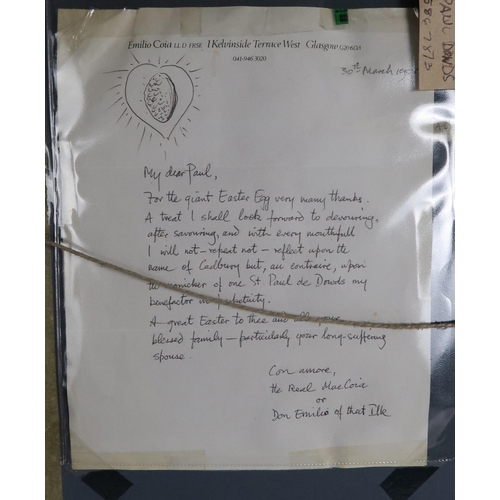 Emilio Coia LL D FRSE 1 Kelvinside Terrace West Glasgow
041-946 3020
30th March
PAUL DOWDS
My dear Paul,
For the giant Easter Egg very many thanks.
A treat I shall look forward to devouring,
after savouring, and with every mouthfull
I will not - repeat not - reflect upon the
name of Cadbury but, au contraire, upon
the monicker of one St Paul de Dowds my
benefactor in perpetuity.
A great Easter to thee and all your
blessed family - particularly your long-suffering
spouse
Con amore,
the Real MacCoia
or
Don Emilio of that Ilk